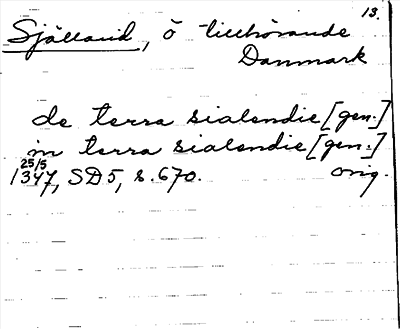 13.
Sjælland, ö tillhörande
Danmark
de terra sialendie [gen.]
in terra sialendie [gen.]
25/5
1347, SD5, s. 670. orig.